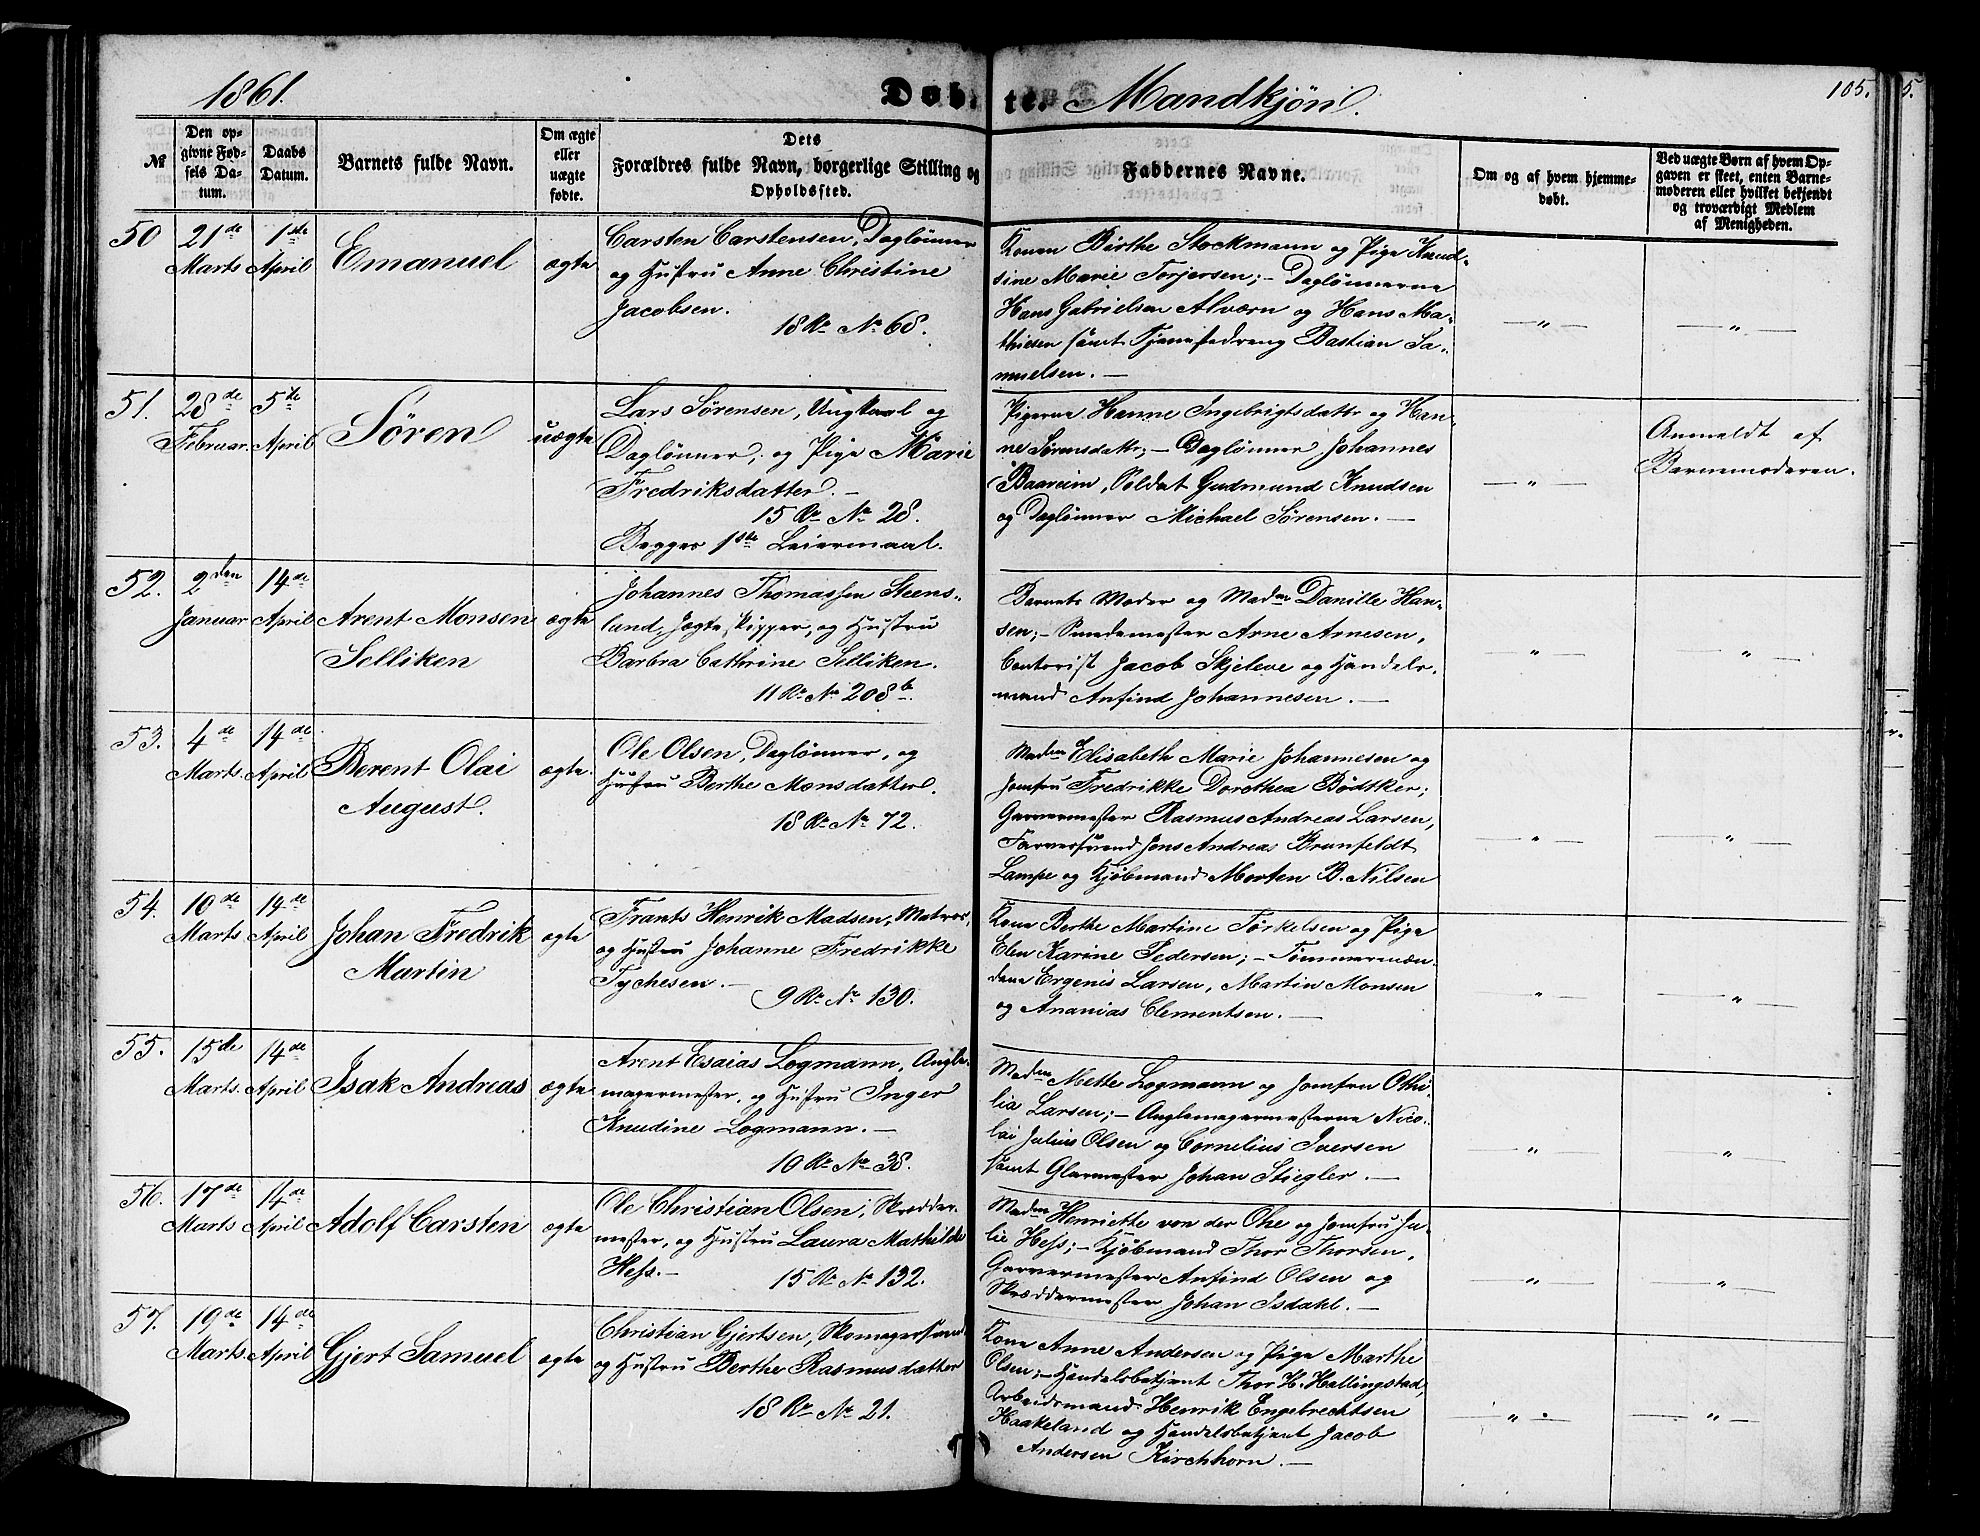 1861.
Døbte. Mandkjøn.
105.
5.
№
Den op-
givne Fød-
sels Da-
tum.
Daabs
Datum.
Barnets fulde Navn.
Om ægte
eller
uægte
fødte.
Dets
Forældres fulde Navn, borgerlige Stilling og
Opholdssted.
Faddernes Navne.
Om og af hvem hjemme-
døbt.
Ved uægte Børn af hvem Op-
gaven er skeet, enten Barne-
moderen eller hvilket bekjendt
og troværdigt Medlem
af Menigheden.
50
21de
Marts
1ste
April
Emanuel
ægte
Carsten Carstensen, Daglønner
og Hustru Anne Christine
Jacobsen.
18 Re No 68.
Konen Birthe Stockmann og Pige Knud-
sine Marie Torjersen; - Daglønnerne
Hans Gabrielsen Alværn og Hans Ma-
thiesen samt Tjenestedreng Bastian Sa-
muelsen. —
— " —
— " —
51.
28de
Februar.
5te
April
Søren
uægte
Lars Sørensen, Ungkarl og
Daglønner, og Pige Marie
Fredriksdatter. —
15 Re No 28.
Begges 1ste Leiermaal.
Pigerne Hanne Ingebrigtsdattr og Han-
ne Sørensdattr; - Daglønner Johannes
Baareim, Soldat Gudmund Knudsen
og Daglønner Michael Sørensen. —
— " —
Anmeldt af
Barnemoderen.
52.
2den
Januar
14de
April
Arent Monsen
Selliken
ægte
Johannes Thomassen Steens-
land, Jægteskipper, og Hustru
Barbra Cathrine Selliken.
11 Re No 208b.
Barnets Moder og Madm Danille Han-
sen; - Smedemester Arne Arnesen,
Contorist Jacob Skjeleve og Handels-
mand Anfind Johannesen. —
— " —
— " —
53.
4de
Marts.
14de
April
Berent Olai
August.
ægte.
Ole Olsen, Daglønner, og
Hustru Berthe Monsdatter.
18 Re No 72.
Madm Elisabeth Marie Johannesen og
Jomfru Fredrikke Dorothea Bödtker;
Garvermester Rasmus Andreas Larsen,
Farversvend Jens Andreas Brunfeldt
Lampe og Kjøbmand Morten B. Nilsen
— " —
— " —
54.
10de
Marts
14de
April
Johan Fredrik
Martin
ægte
Frants Henrik Madsen, Matros,
og Hustru Johanne Fredrikke
Tychesen. —
9 Re No 130.
Kone Berthe Martine Torkelsen og Pige
Elen Karine Pedersen; - Tømmermæn-
dene Ergenis Larsen, Martin Monsen
og Ananias Clementsen. —
— " —
— " —
55.
15de
Marts.
14de
April
Isak Andreas
ægte
Arent Esaias Logmann, Angle-
magermester, og Hustru Inger
Knudine Logmann. —
10 Re No 38.
Madm Mette Logmann og Jomfru Othi-
lia Larsen; - Anglemagermesterne Nico-
lai Julius Olsen og Cornelius Iversen
samt Glarmester Johan Stiegler. —
— " —
— " —
56.
17de
Marts
14de
April
Adolf Carsten
ægte
Ole Christian Olsen, Skrædder-
mester, og Hustru Laura Mathilde
Hess. —
15 Re No 132.
Madm Henriette von der Ohe og Jomfru Ju-
lie Hess; - Kjøbmand Thor Thorsen,
Garvermester Anfind Olsen og
Skræddermester Johan Isdahl. —
— " —
— " —
57.
19de
Marts.
14de
April
Gjert Samuel
ægte
Christian Gjertsen, Skomagersvend
og Hustru Berthe Rasmusdatter
18 Re No 21.
Kone Anne Andersen og Pige Marthe
Olsen; - Handelsbetjent Thor H. Hallingstad,
Arbeidsmand Henrik Engebrechtsen
Haakeland og Handelsbetjent Jacob
Andersen Kirchhorn. —
— " —
— " —